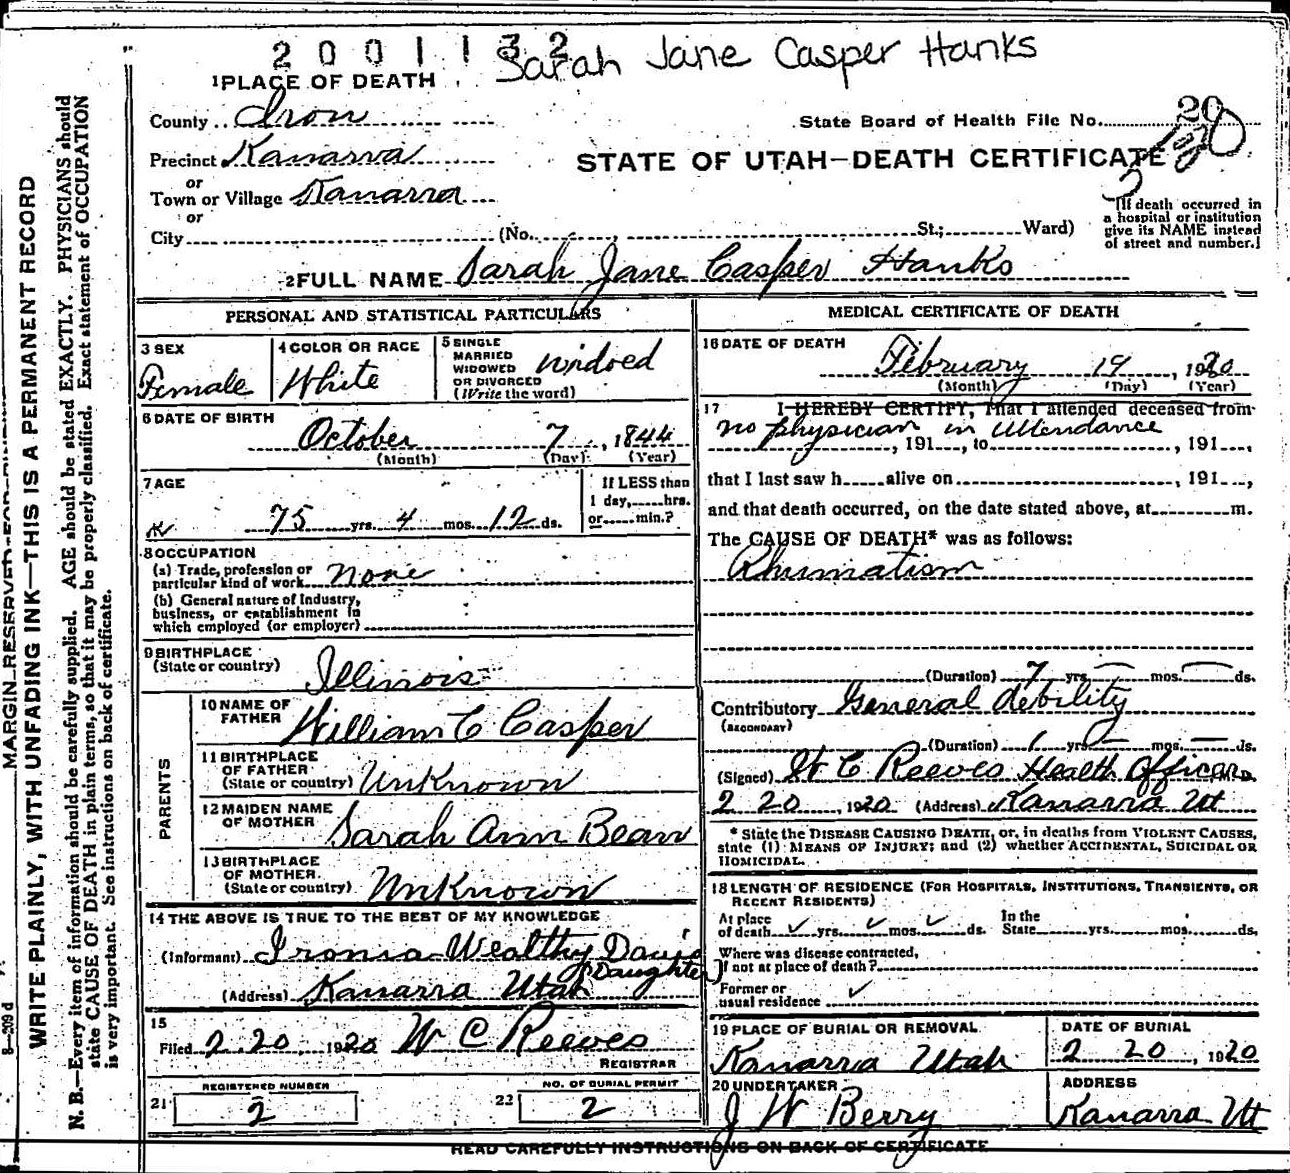 2001132 Sarah Jane Casper Hanks
1 PLACE OF DEATH
County Iron
State Board of Health File No. 20
Precinct Kanarra
STATE OF UTAH—DEATH CERTIFICATE
or
Town or Village Kanarra
or
City (No. St.; Ward)
(If death occurred in
a hospital or institution
give its NAME instead
of street and number.)
2 FULL NAME Sarah Jane Casper Hanks
PERSONAL AND STATISTICAL PARTICULARS
3 SEX
Female
4 COLOR OR RACE
White
5 SINGLE
MARRIED
WIDOWED
OR DIVORCED
(Write the word)
widoed
6 DATE OF BIRTH
October 7, 1844
(Month) (Day) (Year)
7 AGE
75 yrs. 4 mos. 12 ds.
If LESS than
1 day, hrs.
or min.?
8 OCCUPATION
(a) Trade, profession or
particular kind of work none
(b) General nature of Industry,
business, or establishment in
which employed (or employer)
9 BIRTHPLACE
(State or country) Illinois
PARENTS
10 NAME OF
FATHER William C Casper
11 BIRTHPLACE
OF FATHER
(State or country) Unknown
12 MAIDEN NAME
OF MOTHER Sarah Ann Bean
13 BIRTHPLACE
OF MOTHER.
(State or country) Unknown
14 THE ABOVE IS TRUE TO THE BEST OF MY KNOWLEDGE
(Informant) Ironia Wealthy Davis
(Daughter)
(Address) Kanarra Utah
15
Filed 2 20, 1920 W C Reeves
REGISTRAR
REGISTERED NUMBER
21 2
NO. OF BURIAL PERMIT
22 2
MEDICAL CERTIFICATE OF DEATH
16 DATE OF DEATH
February 19, 1920
(Month) (Day) (Year)
17 I HEREBY CERTIFY, That I attended deceased from
no physician in attendance
, 191 , to , 191 ,
that I last saw h alive on , 191 ,
and that death occurred, on the date stated above, at m.
The CAUSE OF DEATH* was as follows:
Rhumatism
(Duration) 7 yrs. — mos. — ds.
Contributory General debility
(SECONDARY)
(Duration) 1 yrs. — mos. — ds.
(Signed) W C Reeves Health Officer M.D.
2 20, 1920 (Address) Kanarra Ut
* State the DISEASE CAUSING DEATH, or, in deaths from VIOLENT CAUSES,
state (1) MEANS OF INJURY; and (2) whether ACCIDENTAL, SUICIDAL OR
HOMICIDAL.
18 LENGTH OF RESIDENCE (FOR HOSPITALS, INSTITUTIONS, TRANSIENTS, OR
RECENT RESIDENTS)
At place
of death ✓ yrs. ✓ mos. ✓ ds.
In the
State yrs. mos. ds.
Where was disease contracted,
if not at place of death?
Former or
usual residence ✓
19 PLACE OF BURIAL OR REMOVAL
Kanarra Utah
DATE OF BURIAL
2 20, 1920
20 UNDERTAKER
J W Berry
ADDRESS
Kanarra Ut
READ CAREFULLY INSTRUCTIONS ON BACK OF CERTIFICATE
8—209 d
MARGIN RESERVED FOR
WRITE PLAINLY, WITH UNFADING INK—THIS IS A PERMANENT RECORD
N. B.—Every item of information should be carefully supplied. AGE should be stated EXACTLY. PHYSICIANS should
state CAUSE OF DEATH in plain terms, so that it may be properly classified. Exact statement of OCCUPATION
is very important. See instructions on back of certificate.